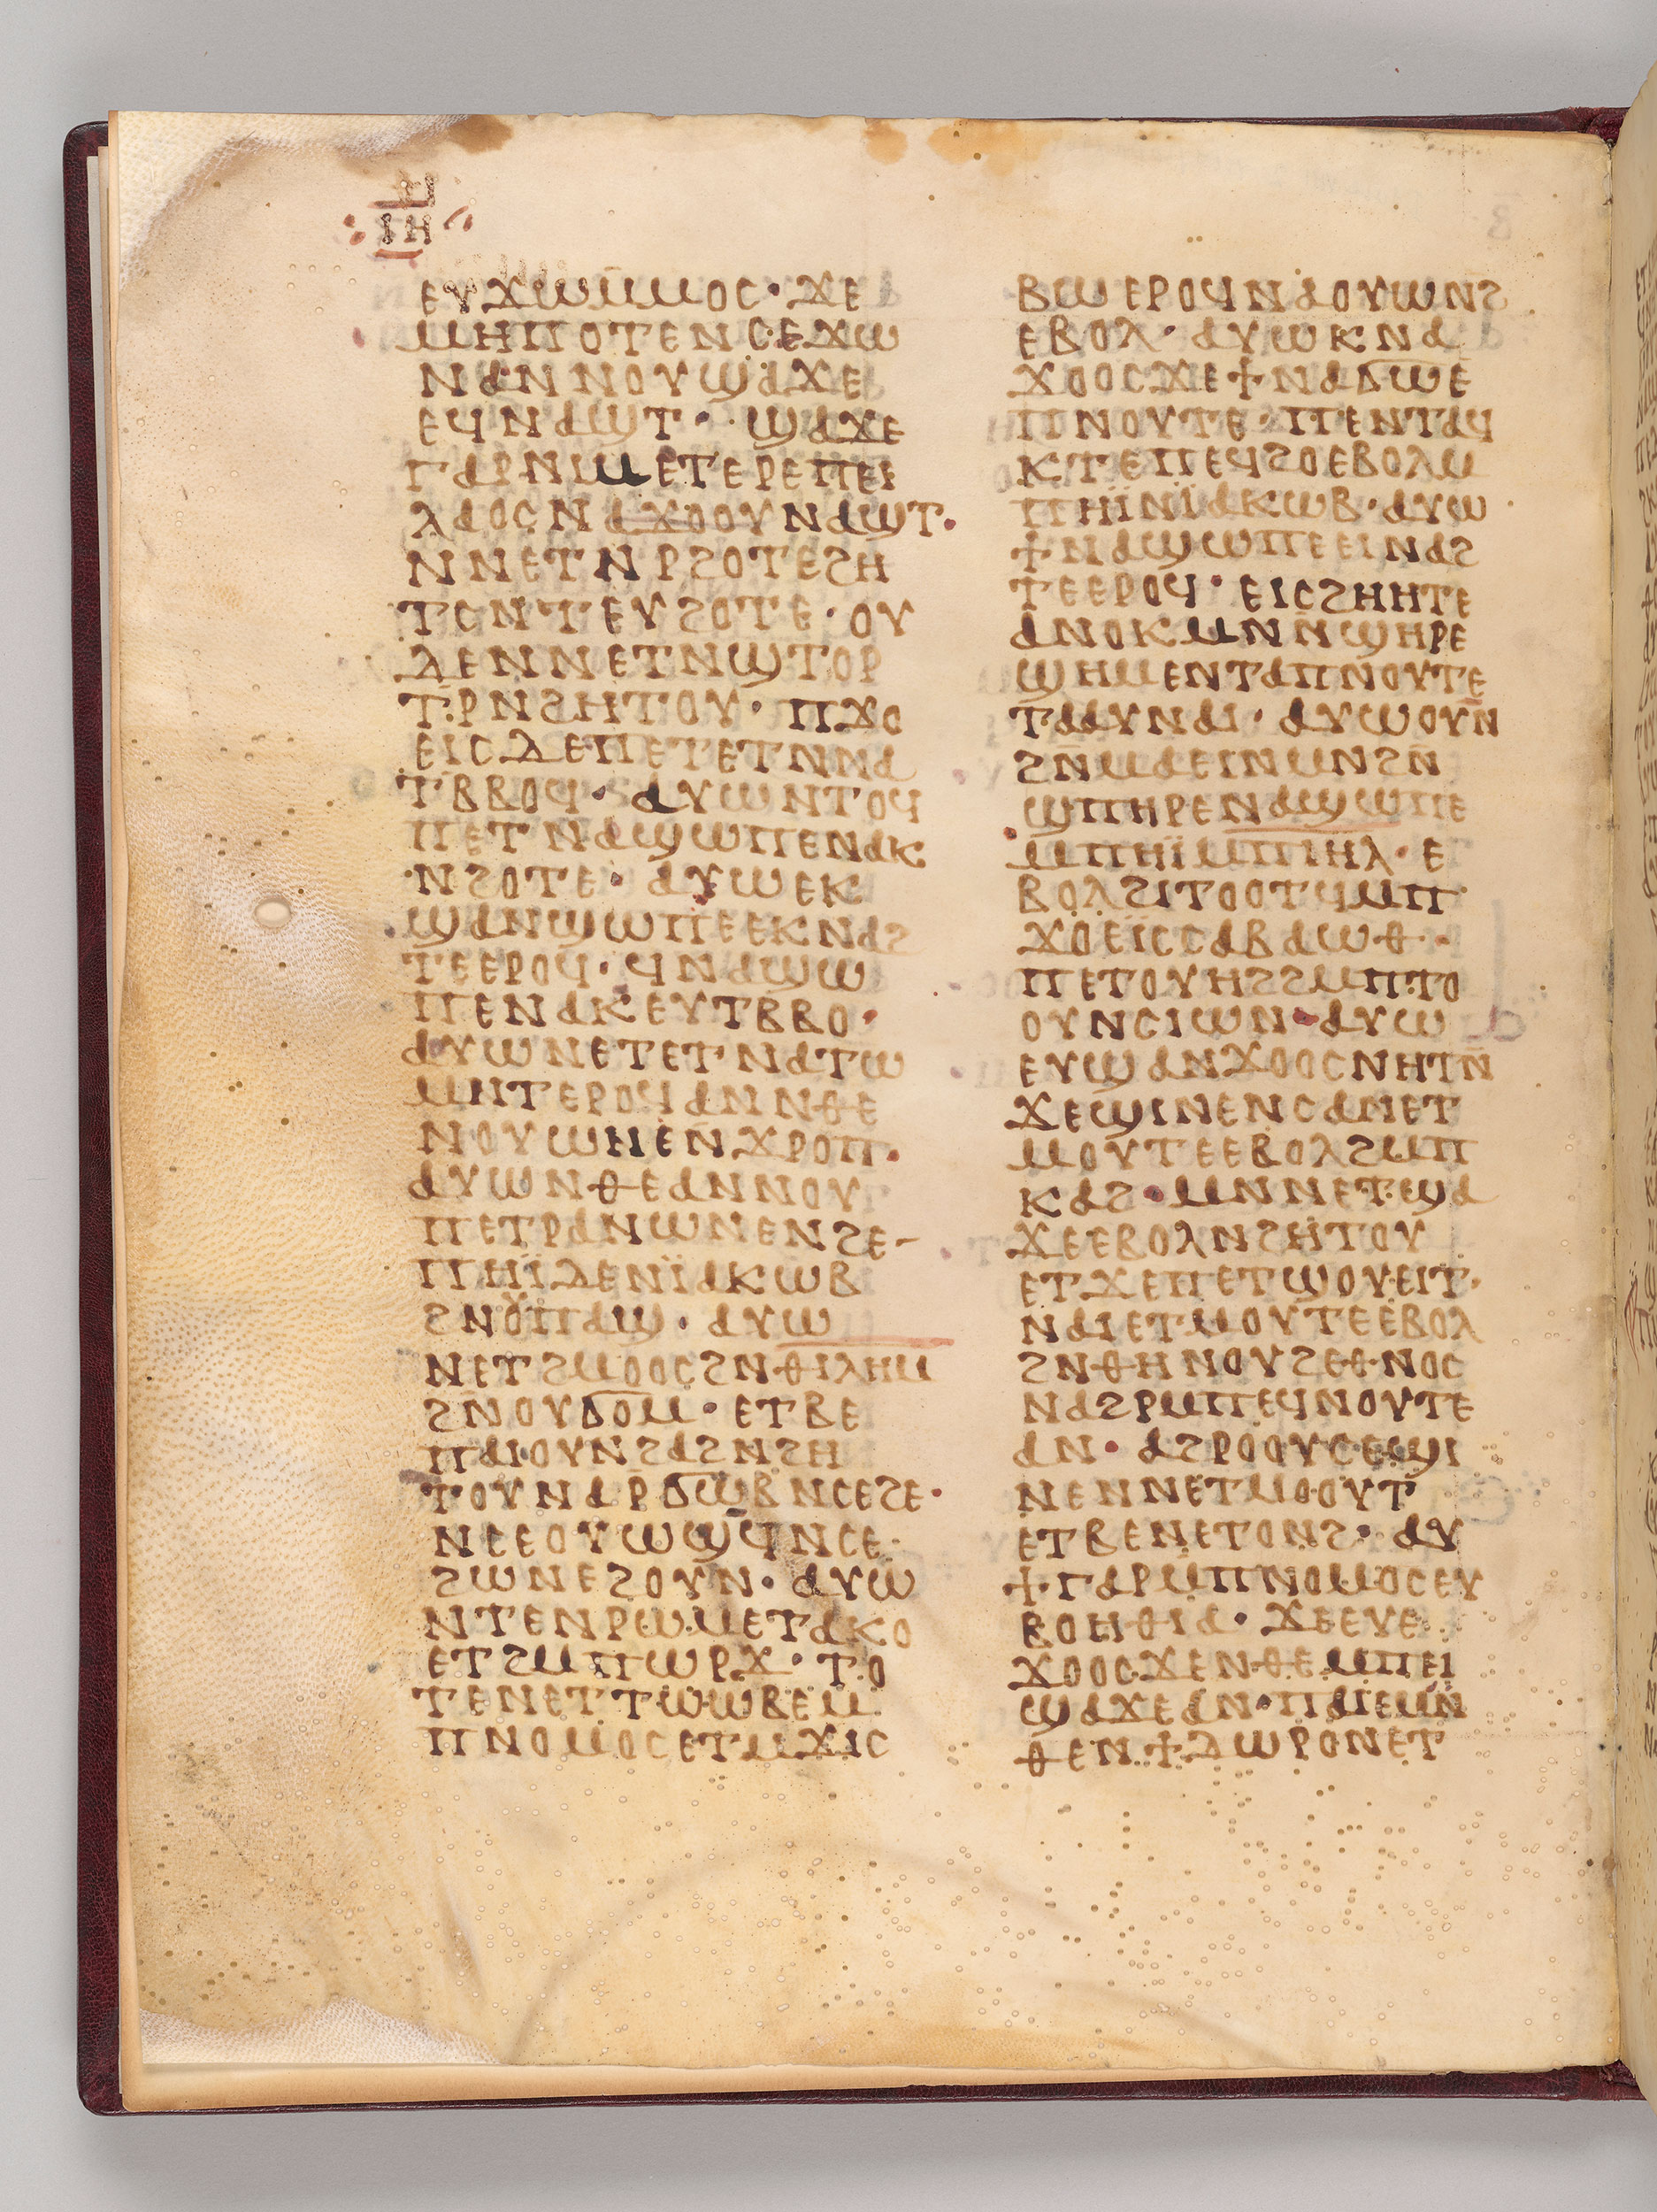 ⲓⲏ
ⲉⲩϫⲱⲙⲙⲟⲥ· ϫⲉ
ⲙⲏⲡⲟⲧⲉⲛⲥⲉϫⲱ
ⲛⲁⲛⲛⲟⲩϣⲁϫⲉ
ⲉϥⲛⲁϣⲧ· ϣⲁϫⲉ
ⲅⲁⲣⲛⲓⲙⲉⲧⲉⲣⲉⲡⲉⲓ
ⲗⲁⲟⲥⲛⲁϫⲟⲟⲩⲛⲁϣⲧ·
ⲛⲛⲉⲧⲛⲣϩⲟⲧⲉϩⲏ
ⲧⲥⲛⲧⲉⲩϩⲟⲧⲉ· ⲟⲩ
ⲇⲉⲛⲛⲉⲧⲛϣⲧⲟⲣ
ⲧⲣⲛϩⲏⲧⲟⲩ· ⲡϫⲟ
ⲉⲓⲥⲇⲉⲡⲉⲧⲉⲧⲛⲛⲁ
ⲧⲃⲃⲟϥ· ⲁⲩⲱⲛⲧⲟϥ
ⲡⲉⲧⲛⲁϣⲱⲡⲉⲛⲁⲕ
ⲛϩⲟⲧⲉ· ⲁⲩⲱⲉⲕ
ϣⲁⲛϣⲱⲡⲉⲉⲕⲛⲁϩ
ⲧⲉⲉⲣⲟϥ· ϥⲛⲁϣⲱ
ⲡⲉⲛⲁⲕⲉⲩⲧⲃⲃⲟ·
ⲁⲩⲱⲛⲉⲧⲉⲧⲛⲁⲧⲱ
ⲙⲛⲧⲉⲣⲟϥⲁⲛⲛⲑⲉ
ⲛⲟⲩⲱⲛⲉⲛϫⲣⲟⲡ·
ⲁⲩⲱⲛⲑⲉⲁⲛⲛⲟⲩ
ⲡⲉⲧⲣⲁⲛⲱⲛⲉⲛϩⲉ-
ⲡⲏⲓ̈ⲇⲉⲛⲓ̈ⲁⲕⲱⲃ
ϩⲛⲟⲩⲡⲁϣ· ⲁⲩⲱ
ⲛⲉⲧϩⲙⲟⲟⲥϩⲛⲑⲓⲗⲏⲙ
ϩⲛⲟⲩϭⲟⲙ· ⲉⲧⲃⲉ
ⲡⲁⲓⲟⲩⲛϩⲁϩⲛϩⲏ
ⲧⲟⲩⲛⲁⲣϭⲱⲃⲛⲥⲉϩⲉ·
ⲛⲥⲉⲟⲩⲱϣϥⲛⲥⲉ
ϩⲱⲛⲉϩⲟⲩⲛ· ⲁⲩⲱ
ⲛⲧⲉⲛⲣⲱⲙⲉⲧⲁⲕⲟ
ⲉⲧϩⲙⲡⲱⲣϫ· ⲧⲟ
ⲧⲉⲛⲉⲧⲧⲱⲱⲃⲉⲙ
ⲡⲛⲟⲙⲟⲥⲉⲧⲙϫⲓⲥ
ⲃⲱⲉⲣⲟϥⲛⲁⲟⲩⲱⲛ̄ϩ
ⲉⲃⲟⲗ· ⲁⲩⲱⲕⲛⲁ
ϫⲟⲟⲥϫⲉϯⲛⲁϭⲱⲉ
ⲡⲛⲟⲩⲧⲉ· ⲡⲉⲛⲧⲁϥ
ⲕⲧⲉⲡⲉϥϩⲟⲉⲃⲟⲗⲙ
ⲡⲏⲓ̈ⲛⲓ̈ⲁⲕⲱⲃ· ⲁⲩⲱ
ϯⲛⲁϣⲱⲡⲉⲉⲓⲛⲁϩ
ⲧⲉⲉⲣⲟϥ· ⲉⲓⲥϩⲏⲏⲧⲉ
ⲁⲛⲟⲕⲙⲛⲛϣⲏⲣⲉ
ϣⲏⲙⲉⲛⲧⲁⲡⲛⲟⲩⲧⲉ
ⲧⲁⲁⲩⲛⲁⲓ· ⲁⲩⲱⲟⲩⲛ̄
ϩⲛ̄ⲙⲁⲉⲓⲛⲙⲛϩⲛ̄
ϣⲡⲏⲣⲉⲛⲁϣⲱⲡⲉ
ⲙⲡⲏⲓ̈ⲙⲡⲓⲏⲗ· ⲉ
ⲃⲟⲗϩⲓⲧⲟⲟⲧϥⲙⲡ
ϫⲟⲉⲓ̈ⲥⲥⲁⲃⲁⲱⲑ·
ⲡⲉⲧⲟⲩⲏϩϩⲙⲡⲧⲟ
ⲟⲩⲛⲥⲓⲱⲛ· ⲁⲩⲱ
ⲉⲩϣⲁⲛϫⲟⲟⲥⲛⲏⲧⲛ̄
ϫⲉϣⲓⲛⲉⲛⲥⲁⲛⲉⲧ
ⲙⲟⲩⲧⲉⲉⲃⲟⲗϩⲙⲡ
ⲕⲁϩ· ⲙⲛⲛⲉⲧϣⲁ
ϫⲉⲉⲃⲟⲗⲛϩⲏⲧⲟⲩ
ⲉⲧϫⲉⲡⲉⲧϣⲟⲩⲉⲓⲧ·
ⲛⲁⲓⲉⲧⲙⲟⲩⲧⲉⲉⲃⲟⲗ
ϩⲛⲑⲏⲛⲟⲩϩⲉⲑⲛⲟⲥ
ⲛⲁϩⲣⲙⲡⲉϥⲛⲟⲩⲧⲉ
ⲁⲛ· ⲁϩⲣⲟⲟⲩⲥⲉϣⲓ
ⲛⲉⲛⲛⲉⲧⲙⲟⲟⲩⲧ
ⲉⲧⲃⲉⲛⲉⲧⲟⲛϩ· ⲁⲩ
ϯⲅⲁⲣⲙⲡⲛⲟⲙⲟⲥⲉⲩ
ⲃⲟⲏⲑⲓⲁ· ϫⲉⲉⲩⲉ
ϫⲟⲟⲥϫⲉⲛⲑⲉⲙⲡⲉⲓ
ϣⲁϫⲉⲁⲛ· ⲡⲁⲓⲉⲙⲛ̄
ⲑⲉⲛϯⲇⲱⲣⲟⲛⲉⲧ